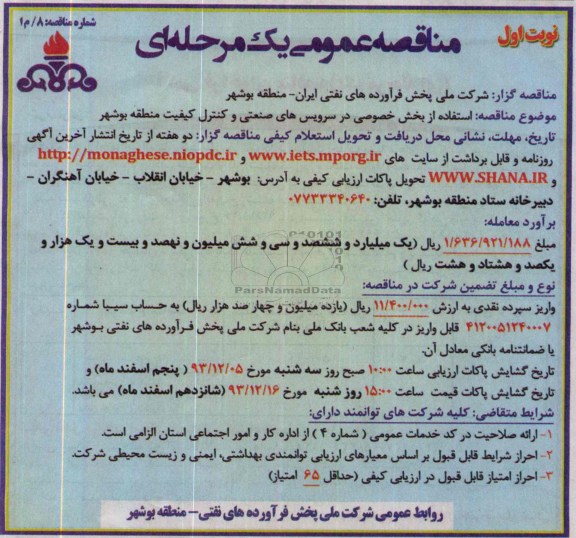 نوبت اول
شماره مناقصه: ۸/ م۱
مناقصه عمومی یک مرحله‌ای
مناقصه گزار: شرکت ملی پخش فرآورده های نفتی ایران- منطقه بوشهر
موضوع مناقصه: استفاده از بخش خصوصی در سرویس های صنعتی و کنترل کیفیت منطقه بوشهر
تاریخ، مهلت، نشانی محل دریافت و تحویل استعلام کیفی مناقصه گزار: دو هفته از تاریخ انتشار آخرین آگهی
روزنامه و قابل برداشت از سایت های www.iets.mporg.ir و http://monaghese.niopdc.ir
و WWW.SHANA.IR تحویل پاکات ارزیابی کیفی به آدرس: بوشهر - خیابان انقلاب - خیابان آهنگران -
دبیرخانه ستاد منطقه بوشهر، تلفن: ۰۷۷۳۳۳۴۰۶۴۰
برآورد معامله:
مبلغ ۱/۶۳۶/۹۲۱/۱۸۸ ریال (یک میلیارد و ششصد و سی و شش میلیون و نهصد و بیست و یک هزار و
یکصد و هشتاد و هشت ریال )
نوع و مبلغ تضمین شرکت در مناقصه:
واریز سپرده نقدی به ارزش ۱۱/۴۰۰/۰۰۰ ریال (یازده میلیون و چهار صد هزار ریال) به حساب سیبا شماره
۴۱۲۰۰۵۱۲۴۰۰۰۷ قابل واریز در کلیه شعب بانک ملی بنام شرکت ملی پخش فرآورده های نفتی بوشهر
یا ضمانتنامه بانکی معادل آن.
تاریخ گشایش پاکات ارزیابی ساعت ۱۰:۰۰ صبح روز سه شنبه مورخ ۹۳/۱۲/۰۵ ( پنجم اسفند ماه) و
تاریخ گشایش پاکات قیمت ساعت ۱۵:۰۰ روز شنبه مورخ ۹۳/۱۲/۱۶ (شانزدهم اسفند ماه) می باشد.
شرایط متقاضی: کلیه شرکت های توانمند دارای:
۱- ارائه صلاحیت در کد خدمات عمومی ( شماره ۴ ) از اداره کار و امور اجتماعی استان الزامی است.
۲- احراز شرایط قابل قبول بر اساس معیارهای ارزیابی توانمندی بهداشتی، ایمنی و زیست محیطی شرکت.
۳- احراز امتیاز قابل قبول در ارزیابی کیفی (حداقل ۶۵ امتیاز)
روابط عمومی شرکت ملی پخش فرآورده های نفتی- منطقه بوشهر
ParsNamadData